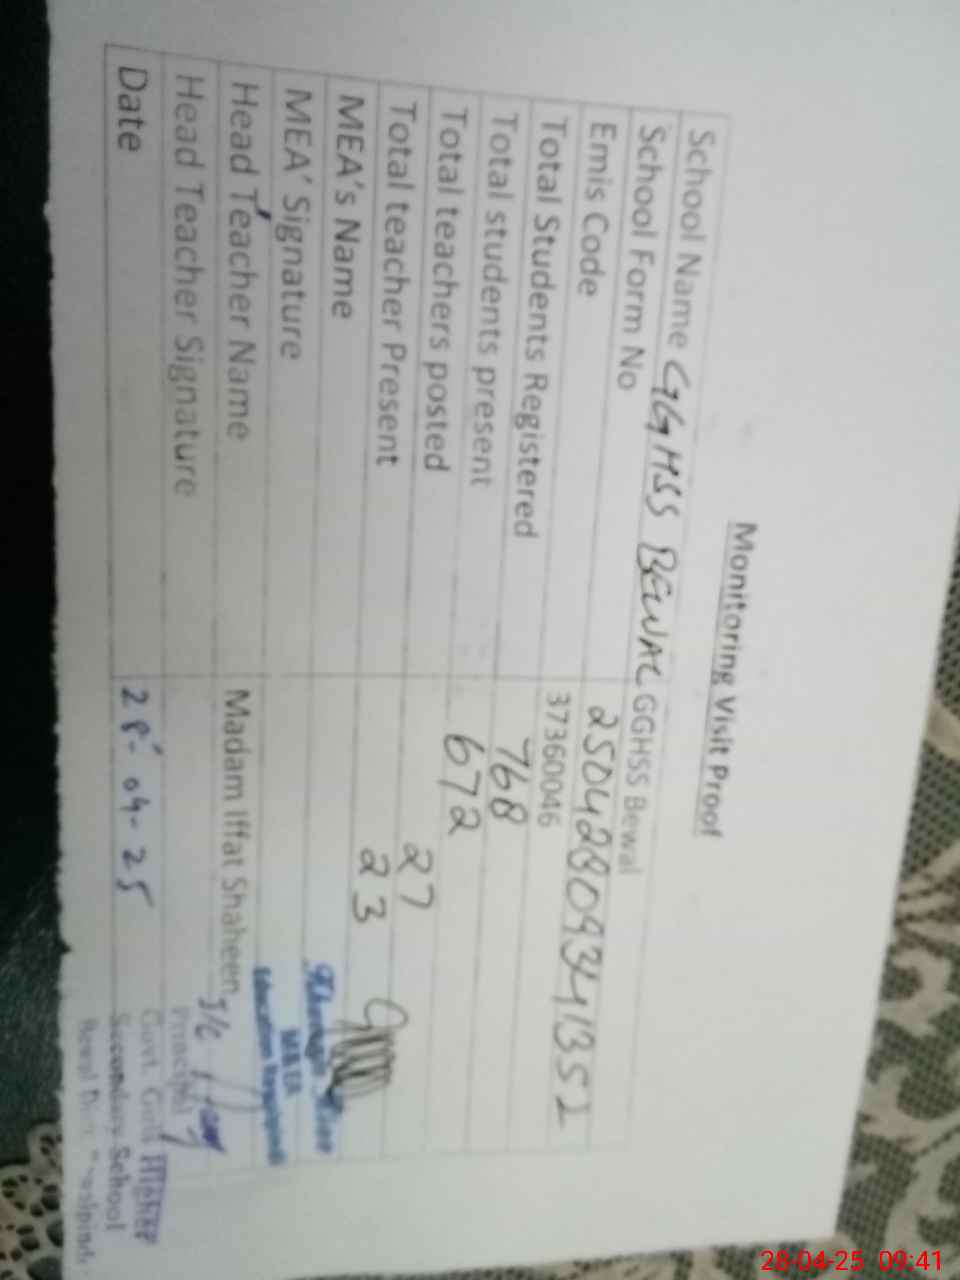 Monitoring Visit Proof
School Name GGHSS BEWAL GGHSS Bewal
School Form No 25042809341352
Emis Code 37360046
Total Students Registered 768
Total students present 672
Total teachers posted 27
Total teacher Present 23
MEA's Name
MEA' Signature MEA
Head Teacher Name Madam Iffat Shaheen
Head Teacher Signature I/C Principal
Date 28-04-25
Govt. Girls Higher
Secondary School
28-04-25 09:41